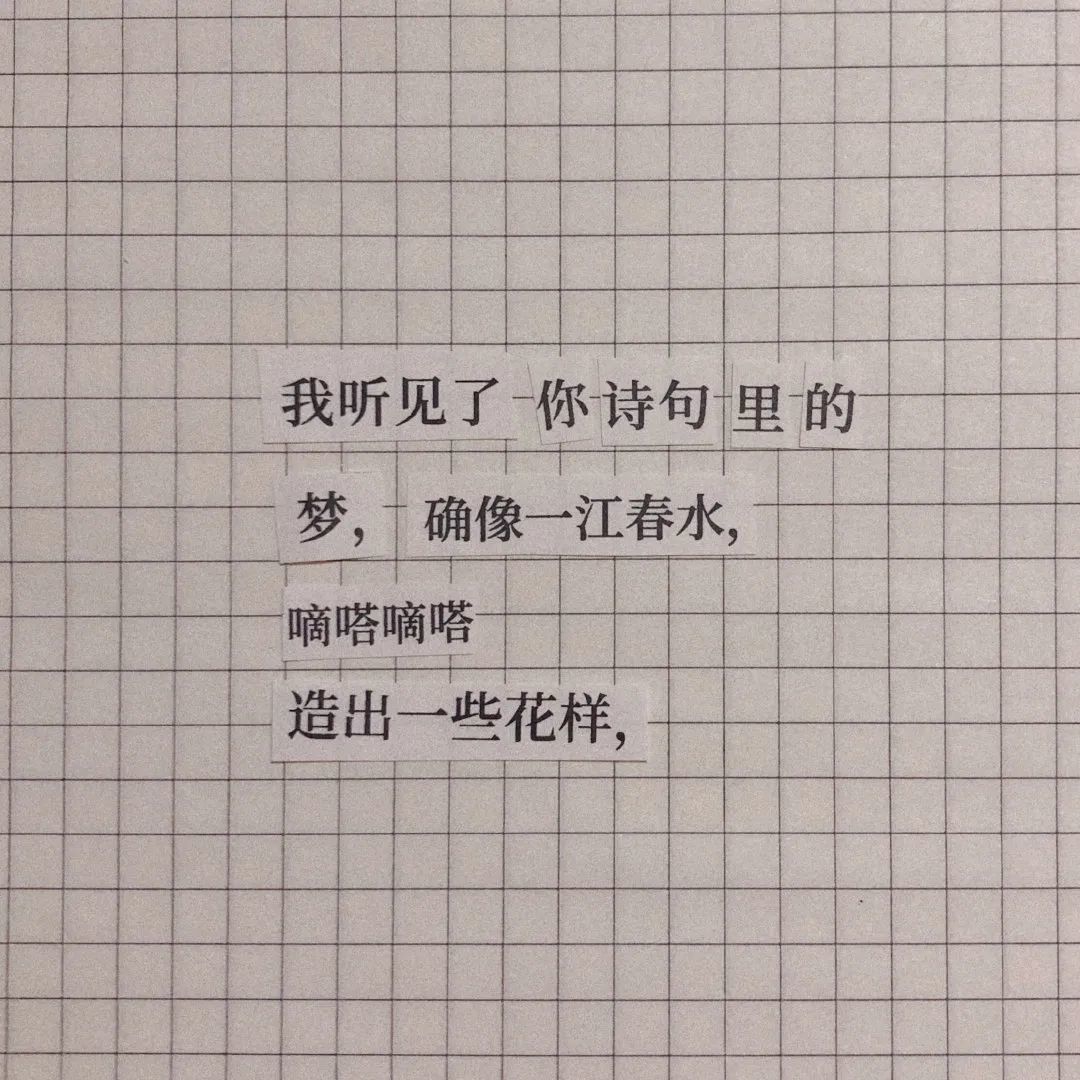 我听见了你诗句里的
梦，确像一江春水，
嘀嗒嘀嗒
造出一些花样，